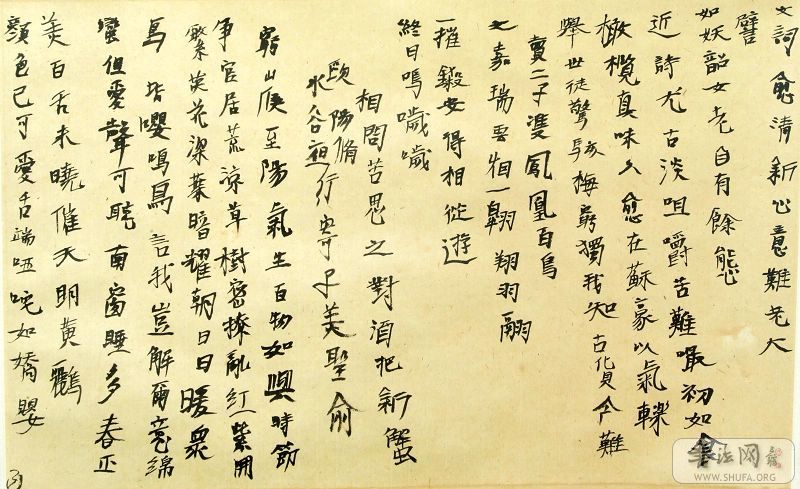 文詞愈清新心意難老大
譬
如妖韶女老自有餘態
近詩尤古淡咀嚼苦難嘬初如食
橄欖真味久愈在蘇豪以氣轢
舉世徒驚駭梅窮獨我知古貨今難
賣二子雙鳳凰百鳥
之嘉瑞雲相一翱翔羽翮
一摧鎩安得相從遊
終日鳴噦噦
相問苦思之對酒把新蟹
歐陽脩
水谷夜行寄子美聖俞
窮山候至陽氣生百物如與時節
爭官居荒涼草樹密撩亂紅紫開
繁英花深葉暗耀朝日日暖衆
鳥皆嚶鳴鳥言我豈解爾意綿
蠻但愛聲可聽南窗睡多春正
美百舌未曉催天明黃鸝
顏色已可愛舌端啞咤如嬌嬰
书法网
WWW.SHUFA.ORG